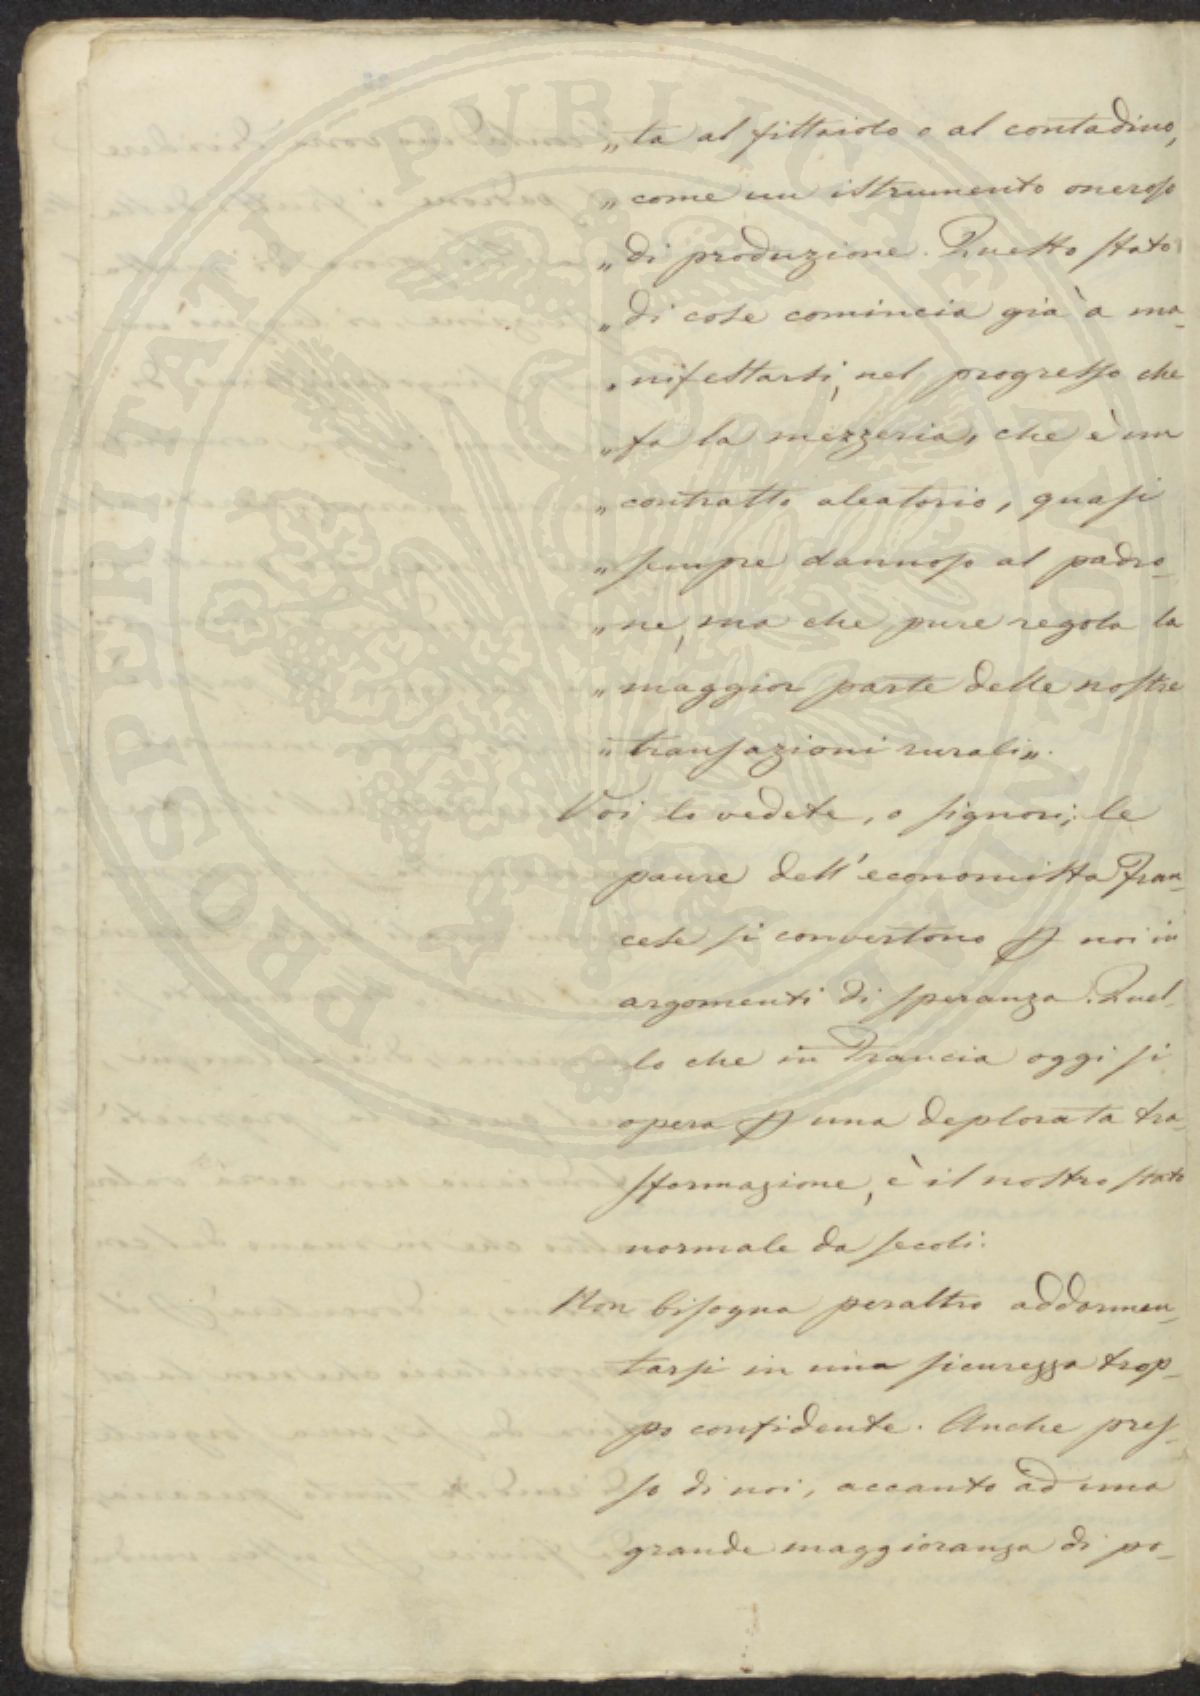 „ ta al fittaiolo o al contadino,
„ come un istrumento oneroso
„ di produzione. Questo stato
„ di cose comincia già a ma-
„ nifestarsi, nel progresso che
„ fa la mezzeria, che è un
„ contratto aleatorio, quasi
„ sempre dannoso al padro-
„ ne, ma che pure regola la
„ maggior parte delle nostre
„ transazioni rurali„.
Voi lo vedete, o signori; le
paure dell'economista Fran-
cese si convertono p noi in
argomenti di speranza. Quel-
lo che in Francia oggi si
opera p una deplorata tra-
sformazione, è il nostro stato
normale da secoli.
Non bisogna peraltro addormen-
tarsi in una sicurezza trop-
po confidente. Anche pres-
so di noi, accanto ad una
grande maggioranza di po-
PROSPERITATI PVBLICAE AVGENDAE